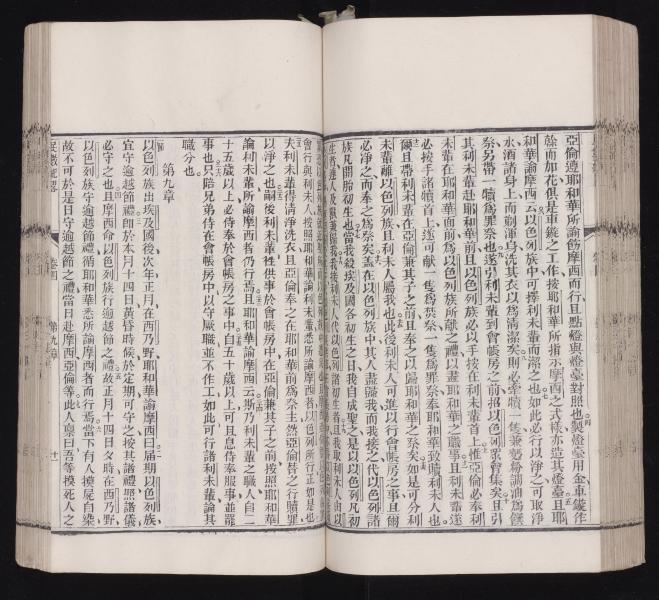 亞倫遵耶和華所諭飭摩西而行且點燈與燈臺對照也製燈臺用金車鏇作
餘而如花俱是車鏇之工作按耶和華所指示摩西之式樣亦造其燈臺且耶
和華諭摩西云以色列族中可擇利未輩而潔之也如此必行以淨之可取淨
水洒諸身上而剃渾身洗其衣以爲清潔矣則必牽犢一隻兼麪粉調油爲饌
祭另帶一犢爲罪祭也遂引利未輩到會帳房之前招以色列眾會集矣且引
其利未輩赴耶和華前且以色列族必以手按在利未輩首上惟亞倫必奉利
未輩在耶和華面前爲以色列族所獻之禮以盡耶和華之職事且利未輩遂
必按手諸犢首上遂可獻一隻爲罪祭一隻爲焚祭奉耶和華致贖利未人也
爾且帶利未輩在亞倫兼其子之前且奉之以歸耶和華之祭矣如是可分利
未輩離以色列族且利未人屬我也此後利未人可進以行會帳房之事且爾
必淨之而奉之爲祭矣蓋在以色列族中其人盡歸我而我接之代以色列諸
族凡開胎初生也當我殺埃及國各初生之日我自成聖之是以以色列凡初
生者連人及獸兼歸我我接利未人代以色列諸初生者我取利未人由以
會行與利未人按照耶和華諭利未輩悉所諭摩西者以色列所行正如是也
夫利未輩得清淨洗衣且亞倫奉之在耶和華前爲祭主然亞倫替之行贖罪
以淨之也嗣後利未輩往供事於會帳房中在亞倫兼其子之前按照耶和華
諭利未輩所諭摩西者仍行焉且耶和華諭摩西云斯乃利未輩之職人自二
十五歲以上必侍奉於會帳房之事中自五十歲以上可且息侍奉服事並罷
事也只陪兄弟侍在會帳房中以守厥職並不作工如此可行諸利未輩論其
職分也
第九章
以色列族出埃及國後次年正月在西乃野耶和華諭摩西曰屆期以色列族
宜守逾越節禮卽於本月十四日黃昏時候於定期可守之按其諸禮照諸儀
必守之也且摩西命以色列族行逾越節之禮故正月十四日夕時在西乃野
以色列族守逾越節禮循耶和華悉所諭摩西者而行焉當下有人摸屍自染
故不可於是日守逾越節之禮當日赴摩西亞倫等此人稟曰吾等摸死人之
民數紀畧
卷四
第九章
十一